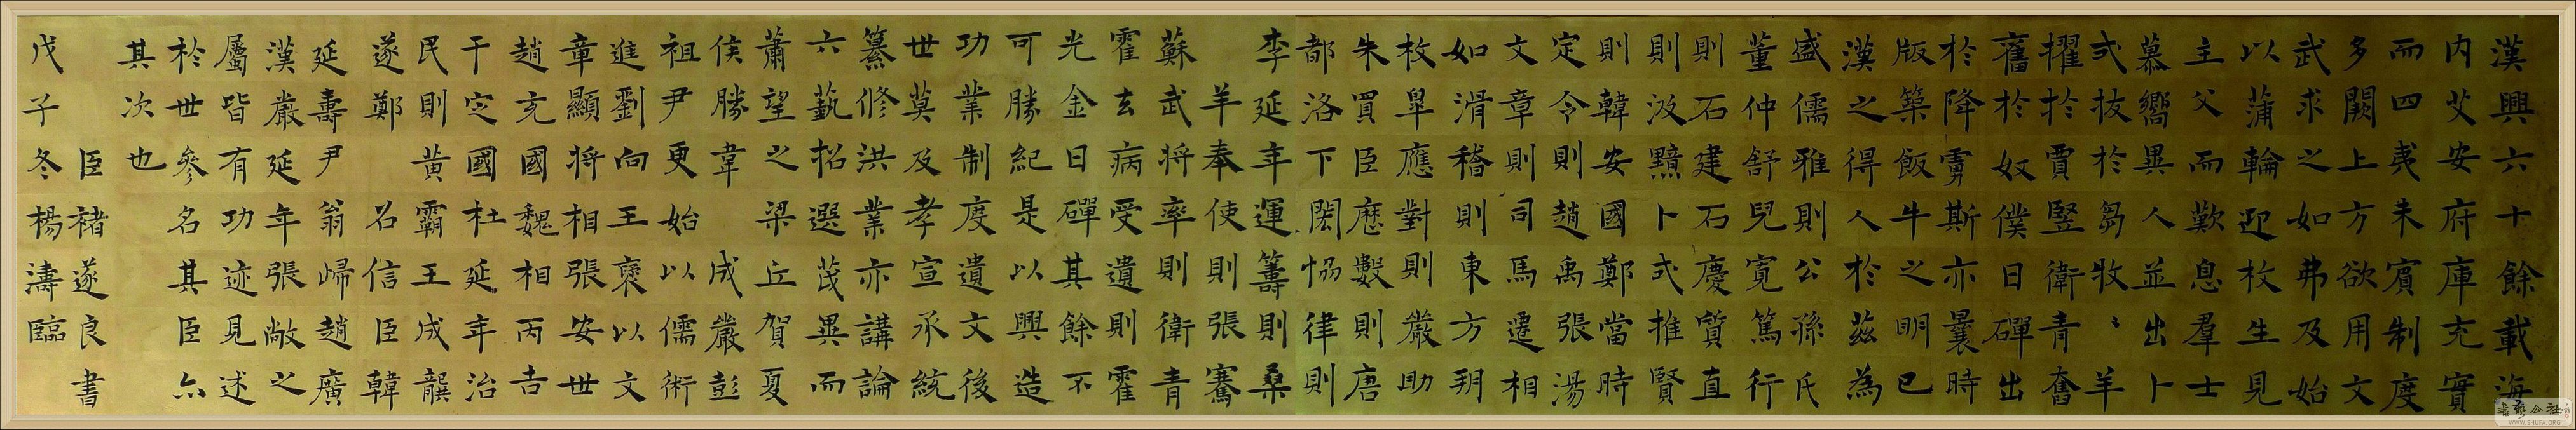 漢興六十餘載海
内艾安府庫充實
而四夷未賓制度
多闕上方欲用文
武求之如弗及始
以蒲輪迎枚生見
主父而歎息羣士
慕嚮異人並出卜
式拔於芻牧〻羊
擢於賈豎衛青奮
舊於奴僕日磾出
於降虜斯亦曩時
版築飯牛之明已
漢之得人於茲為
盛儒雅則公孫氏
董仲舒兒寬篤行
則石建石慶質直
則汲黯卜式推賢
則韓安國鄭當時
定令則趙禹張湯
文章則司馬遷相
如滑稽則東方朔
枚皋應對則嚴助
朱買臣歷數則唐
都洛下閎協律則
李延年運籌則桑
羊奉使則張騫
蘇武将率則衛青
霍去病受遺則霍
光金日磾其餘不
可勝紀是以興造
功業制度遺文後
世莫及孝宣承統
纂修洪業亦講論
六藝招選茂異而
蕭望之梁丘賀夏
侯勝韋 成嚴彭
祖尹更始以儒術
進劉向王褒以文
章顯将相張安世
趙充國魏相丙吉
于定國杜延年治
民則黄霸王成龔
遂鄭 召信臣韓
延壽尹翁歸趙廣
漢嚴延年張敞之
屬皆有功迹見述
於世參名其臣亦
其次也
臣褚遂良書
戊子冬楊濤臨
WWW.SHUFA.ORG